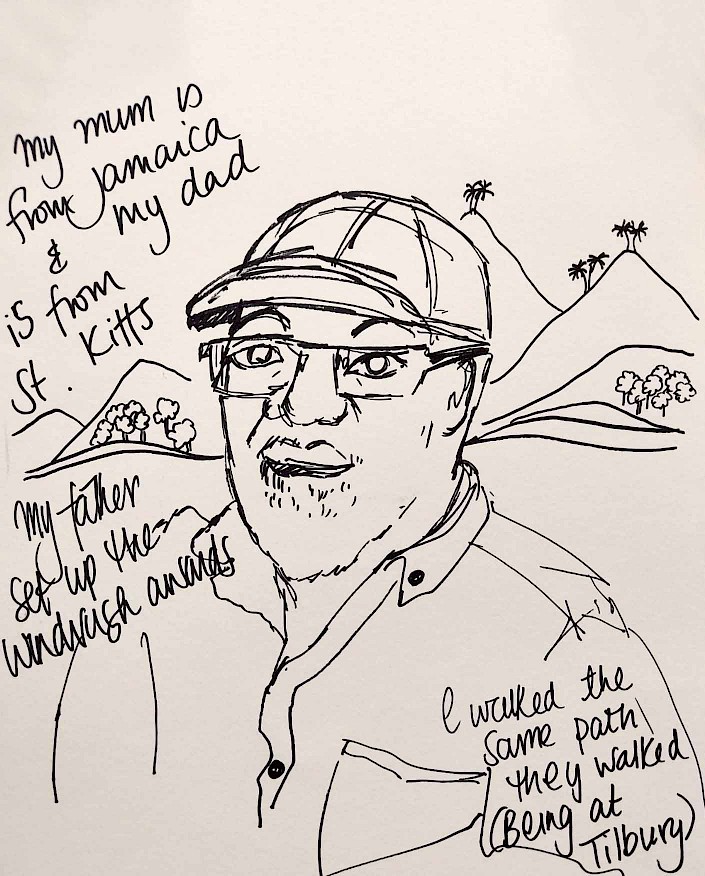 my mum is
from Jamaica
& my dad
is from
St. Kitts
my father
set up the
windrush awards
I walked the
same path
they walked
(Being at
Tilbury)